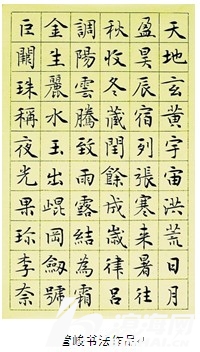 天地玄黃宇宙洪荒日月
盈昃辰宿列張寒来暑往
秋收冬藏閏餘成歲律呂
調陽雲騰致雨露結為霜
金生麗水玉出崐岡劔號
巨闕珠稱夜光果珎李奈
峻书法作品